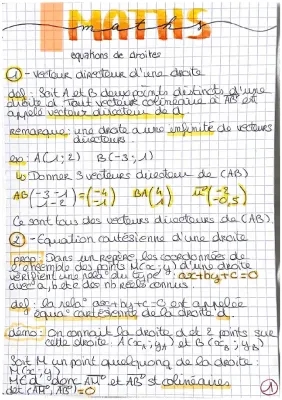 MATHS
maths
equations de droites
1 - vecteur directeur d'une droite
def : Soit A et B deux points distincts d'une
droite d. Tout vecteur colinéaire à AB est
appelé vecteur directeur de d.
remarque : une droite a une infinité de vecteurs
directeurs.
ex : A(1;2) B(-3;1)
↳ Donner 3 vecteurs directeurs de (AB)
AB(-3-1 / 1-2) = (-4 / -1) BA(4 / 1) u(-2 / -0,5)
Ce sont tous des vecteurs directeurs de (AB).
2 - Equation cartésienne d'une droite
prop : Dans un repère, les coordonnées de
l'ensemble des points M(x;y) d'une droite
vérifient une rela° du type : ax+by+c=0
avec a, b et c des nb réels connus.
def : la rela° ax+by+c=0 est appelée
équa° cartésienne de la droite d
démo : On connaît la droite d et 2 points sur
cette droite : A(xA;yA) et B(xB;yB)
Soit M un point quelconque de la droite :
M(x;y)
M∈d donc AM et AB st colinéaires
det(AM;AB)=0
1